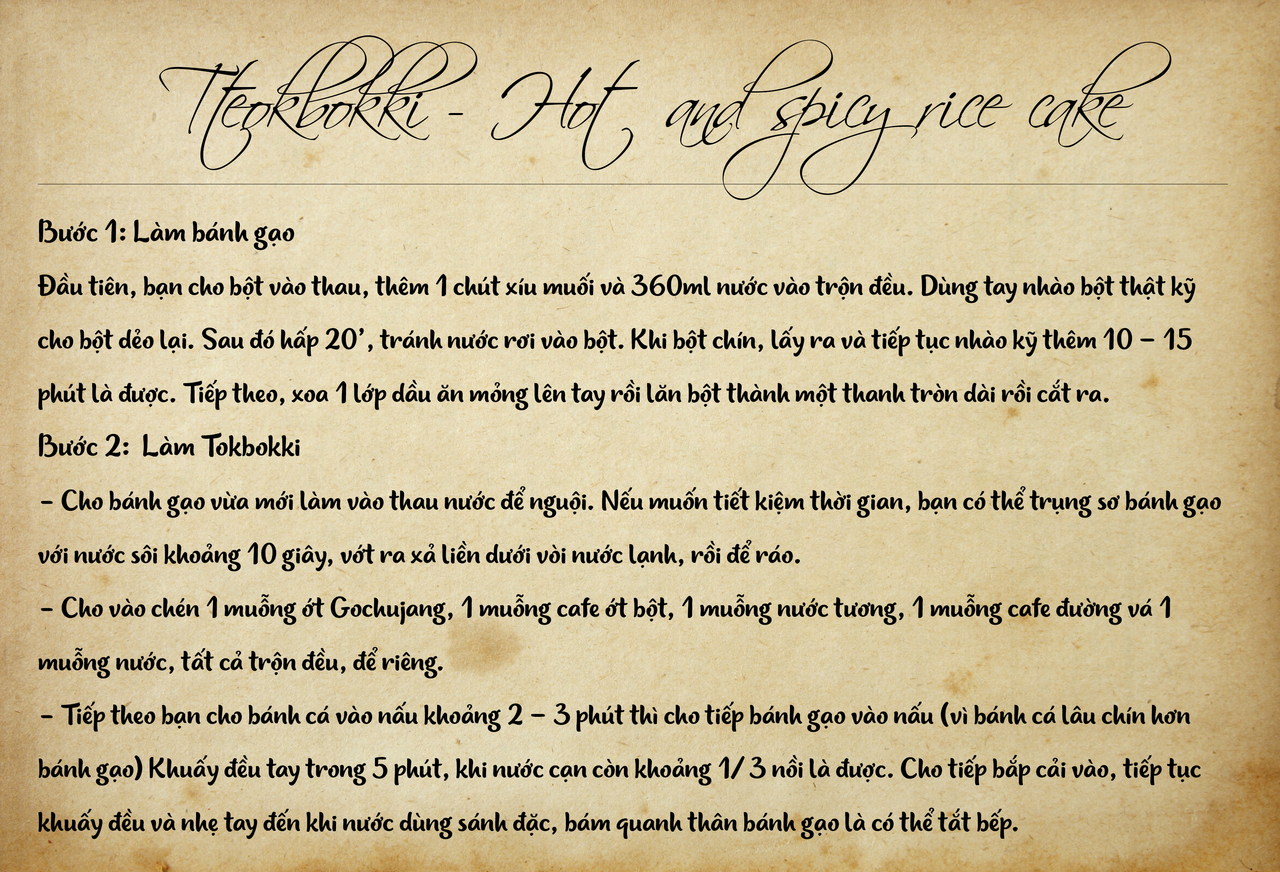 Tteokbokki - Hot and spicy rice cake
Bước 1: Làm bánh gạo
Đầu tiên, bạn cho bột vào thau, thêm 1 chút xíu muối và 360ml nước vào trộn đều. Dùng tay nhào bột thật kỹ
cho bột dẻo lại. Sau đó hấp 20’, tránh nước rơi vào bột. Khi bột chín, lấy ra và tiếp tục nhào kỹ thêm 10 – 15
phút là được. Tiếp theo, xoa 1 lớp dầu ăn mỏng lên tay rồi lăn bột thành một thanh tròn dài rồi cắt ra.
Bước 2: Làm Tokbokki
– Cho bánh gạo vừa mới làm vào thau nước để nguội. Nếu muốn tiết kiệm thời gian, bạn có thể trụng sơ bánh gạo
với nước sôi khoảng 10 giây, vớt ra xả liền dưới vòi nước lạnh, rồi để ráo.
– Cho vào chén 1 muỗng ớt Gochujang, 1 muỗng cafe ớt bột, 1 muỗng nước tương, 1 muỗng cafe đường vá 1
muỗng nước, tất cả trộn đều, để riêng.
– Tiếp theo bạn cho bánh cá vào nấu khoảng 2 – 3 phút thì cho tiếp bánh gạo vào nấu (vì bánh cá lâu chín hơn
bánh gạo) Khuấy đều tay trong 5 phút, khi nước cạn còn khoảng 1/3 nồi là được. Cho tiếp bắp cải vào, tiếp tục
khuấy đều và nhẹ tay đến khi nước dùng sánh đặc, bám quanh thân bánh gạo là có thể tắt bếp.